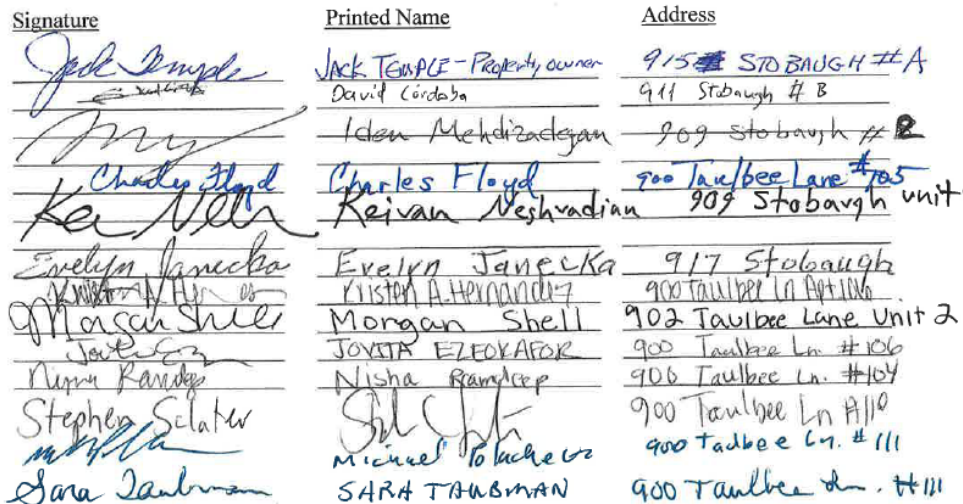 Signature Printed Name Address
Jack Temple JACK TEMPLE - Property owner 915 STOBAUGH # A
David Córdoba 911 Stobaugh # B
Iden Mehdizadegan 909 Stobaugh #
Charles Floyd Charles Floyd 900 Taulbee Lane #105
Keivan Neshvadian 909 Stobaugh unit
Evelyn Janecka Evelyn Janecka 917 Stobaugh
Kristen A. Hernandez 900 Taulbee Ln Apt
Morgan Shell Morgan Shell 902 Taulbee Lane Unit 2
JOVITA EZEOKAFOR 900 Taulbee Ln. #106
Nisha 900 Taulbee Ln. #104
Stephen Sclater 900 Taulbee Ln A110
Michael 900 Taulbee Ln. # 111
Sara Taubman SARA TAUBMAN 900 Taulbee Ln. #111